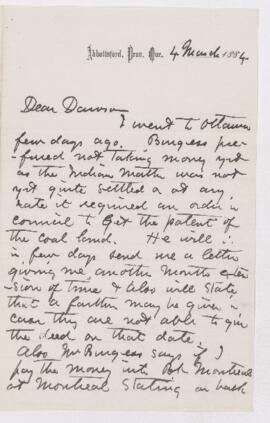 Abbottsford, Prov. Que. 4 March 1884
Dear Dawson
I went to Ottawa
few days ago. Burgess pre-
fered not taking money yet
as the Indian Matter was not
yet quite settled & at any
rate it required an order in
council to get the patent of
the coal land. He will
in few days send me a letter
giving me another months exten-
sion of time & also will state
that a further may be given in
case they are not able to give
the deed on that date.
Also Mr Burgess says if I
pay the money into Bk Montreal
at Montreal stating on back